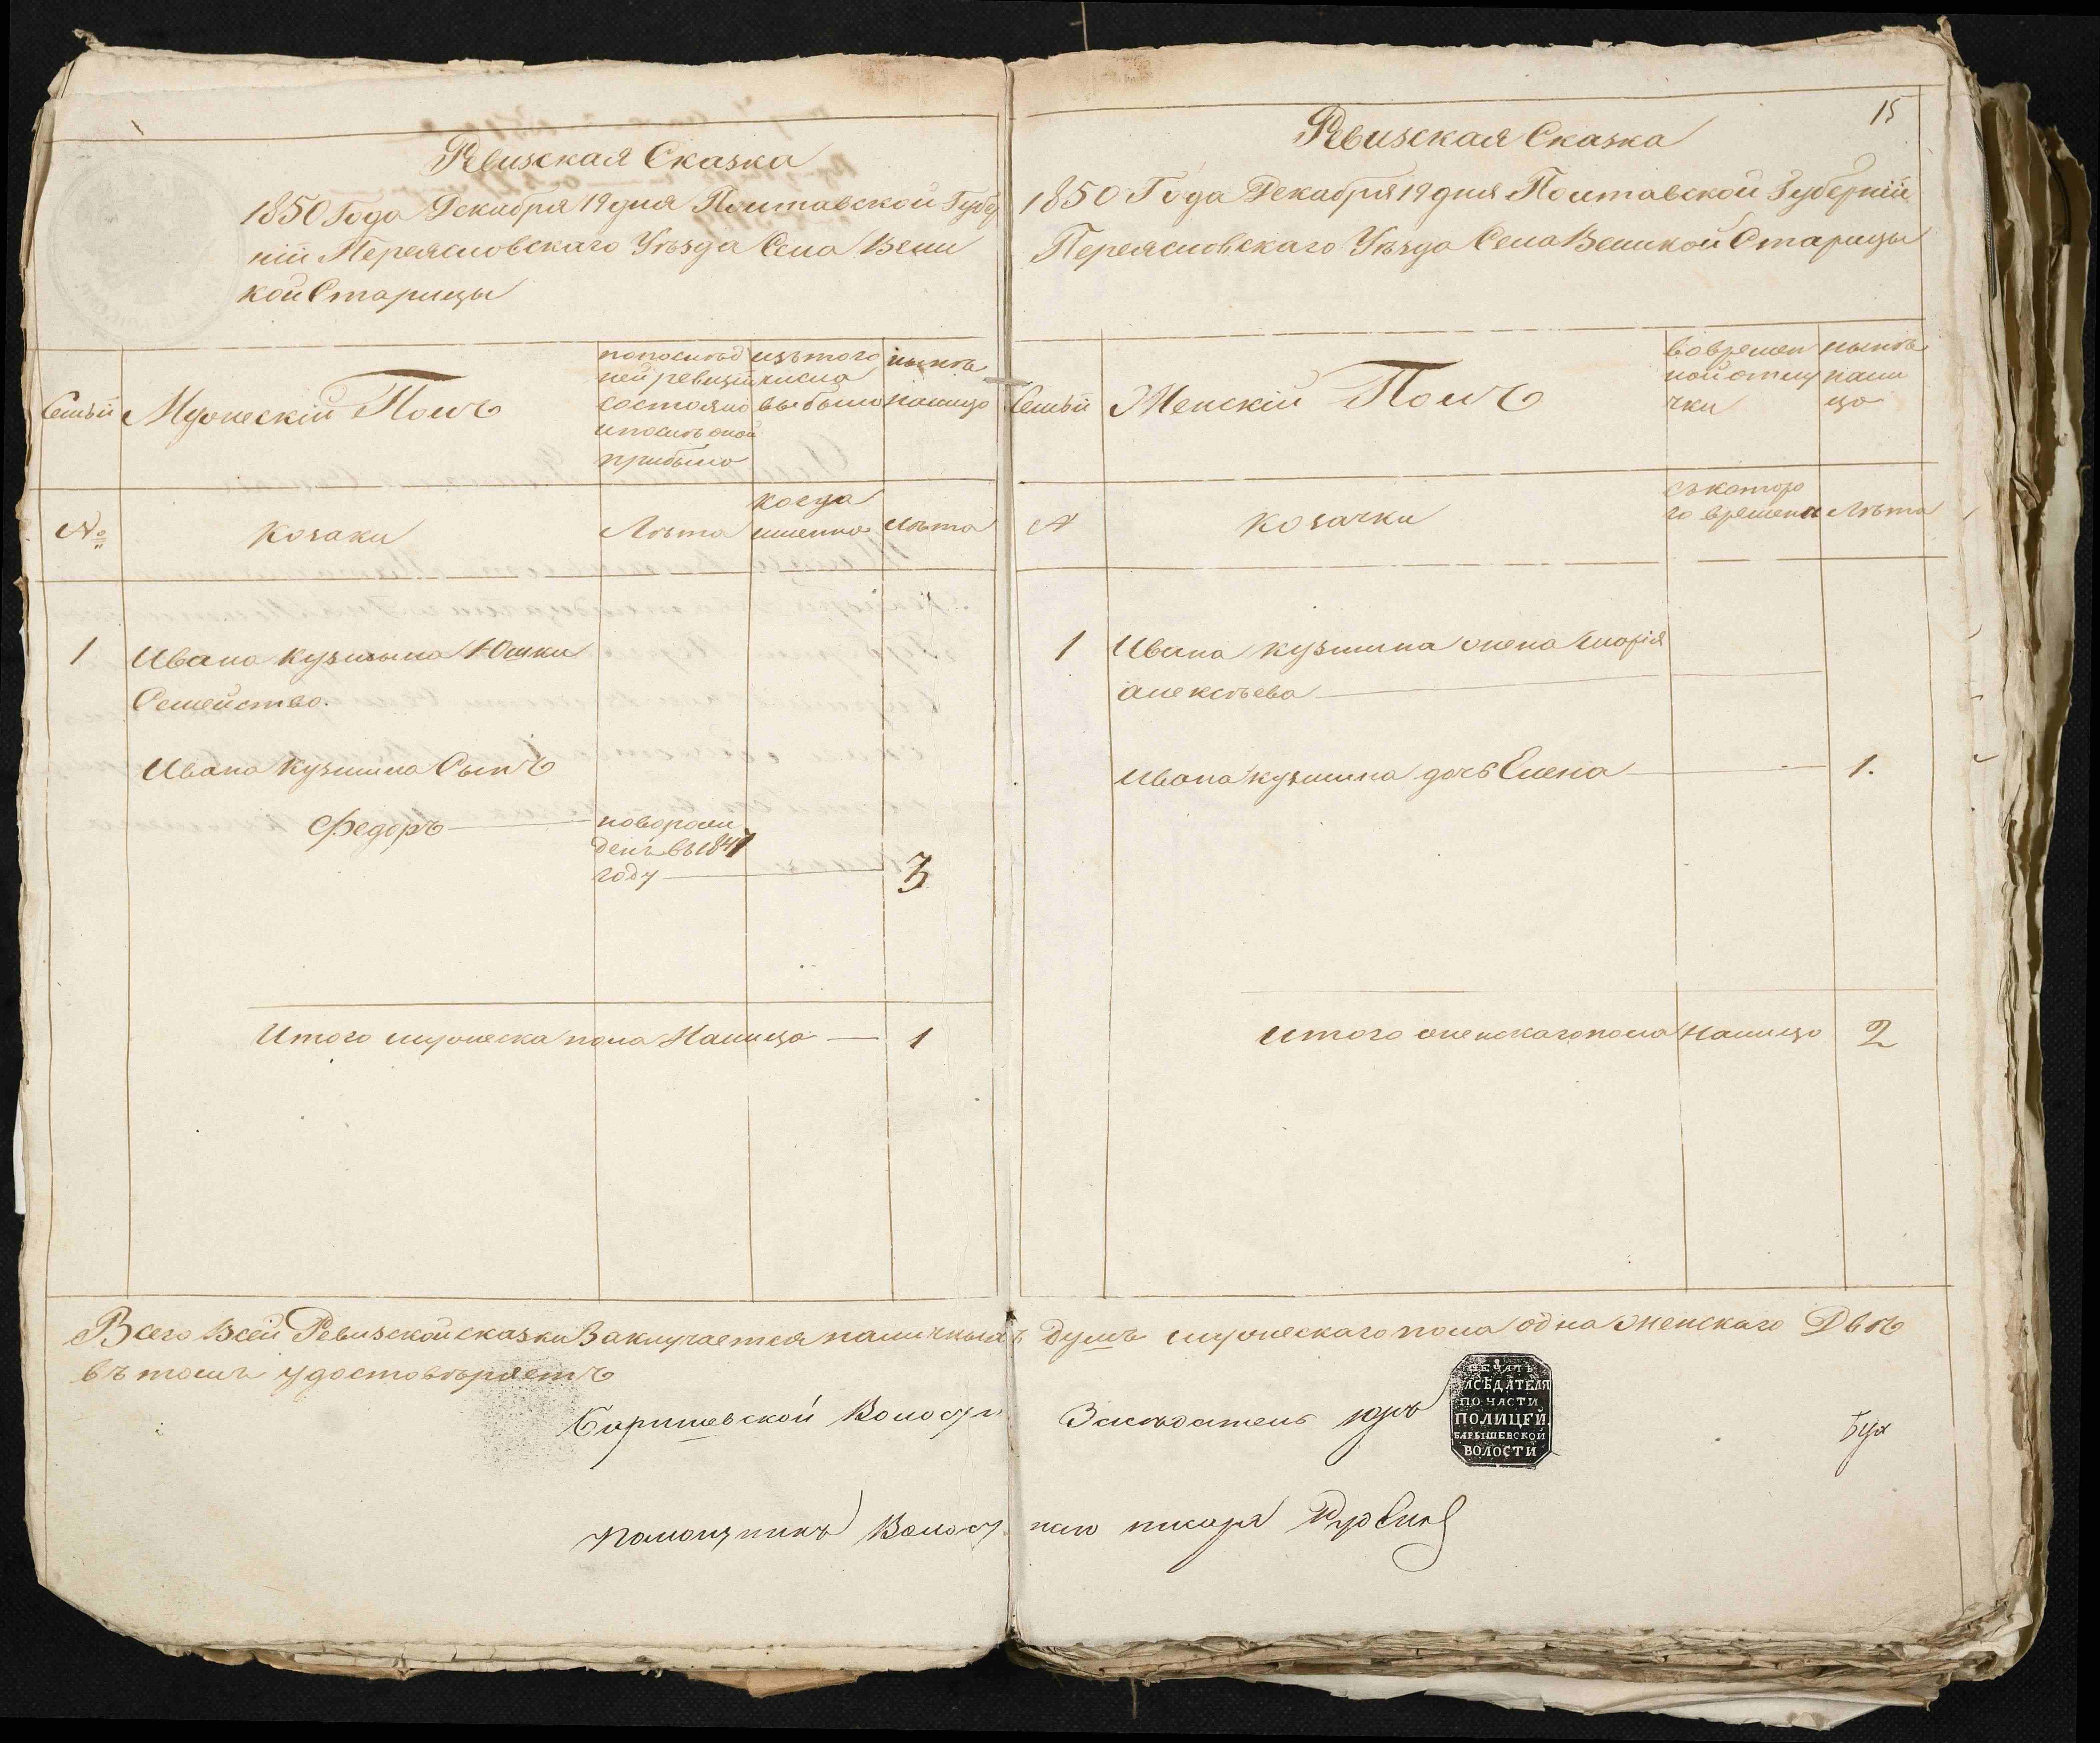 Ревизская Сказка
1850 Года Декабря 19 дня Полтавской Губер
ніи Переясловскаго Уѣзда Села Вели
кой Старицы
Семьи
Мужескій Полъ
попослѣд
ней ревизіи
состояло
ипослѣ оной
прибыло
изътого
числа
выбыло
нынѣ
налицо
№
козаки
Лѣта
когда
именно
Лѣта
1
Ивана Кузьмына Юшки
Семейство.
Ивана Кузмина Сынъ
Федоръ
новорож
денъ въ 1847
году
3
Итого мужеска пола Налицо
1
15
Ревизская Сказка
1850 Года Декабря 19 дня Полтавской Губерніи
Переясловскаго Уѣзда Села Великой Старицы
Семьи
Женскій Полъ
вовремен
ной отлу
чки
нынѣ
нали
цо
№
козачки
съкоторо
го времени
Лѣта
1
Ивана кузмина жена Марія
алексѣева
Ивана кузмина дочь Елена
1.
итого женскаго пола Налицо
2
Всего Всей Ревизской сказки Заключается наличныхъ душъ мужескаго пола одна женскаго Двѣ
въ томъ удостовѣряетъ
Баришевской Волости Засѣдатель
ПЕЧАТЬ
ЗАСѢДАТЕЛЯ
ПО ЧАСТИ
ПОЛИЦЕЙ.
БАРЫШЕВСКОЙ
ВОЛОСТИ
помощникъ Волост наго писара